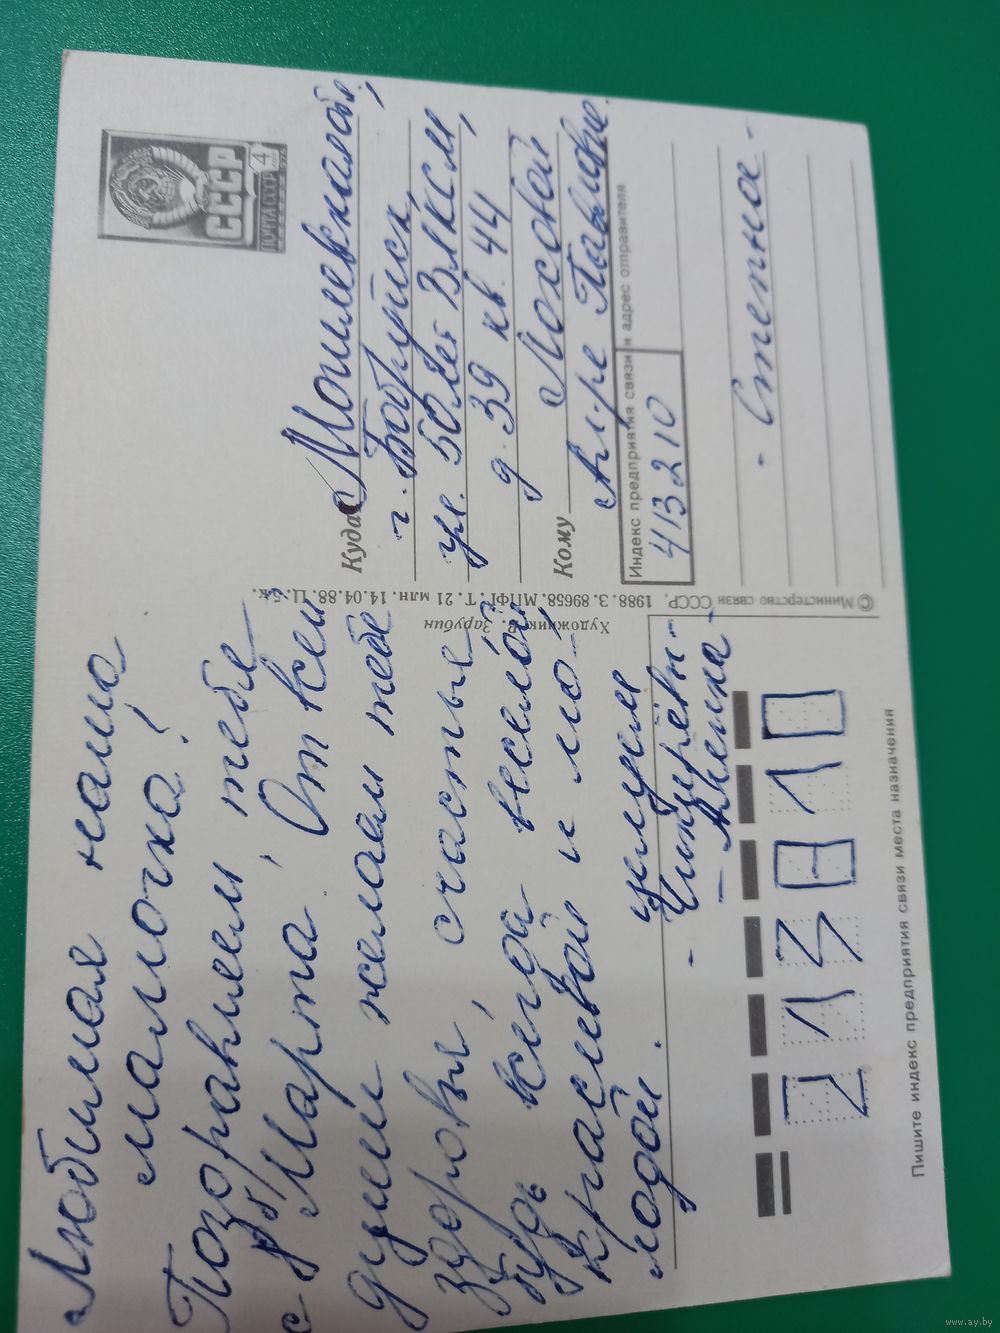 Любимая наша
мамочка!
Поздравляем тебя
с 8 Марта. От всей
души желаем тебе
здоровья, счастья,
будь всегда весёлой,
красивой и мо-
лодой.
целуем
- Алёшка -
ПОЧТА СССР
4
СССР
Куда Могилевская обл,
г. Бобруйск,
ул. 50 лет ВЛКСМ,
д. 39 кв. 44
Кому Моховой
Павловне.
Индекс предприятия связи и адрес отправителя
413210
- Степное -
© Министерство связи СССР, 1988. З. 89658. МПФГ. Т. 21 млн. 14.04.88. Ц. 5 к.
Художник В. Зарубин
213810
Пишите индекс предприятия связи места назначения
www.ay.by